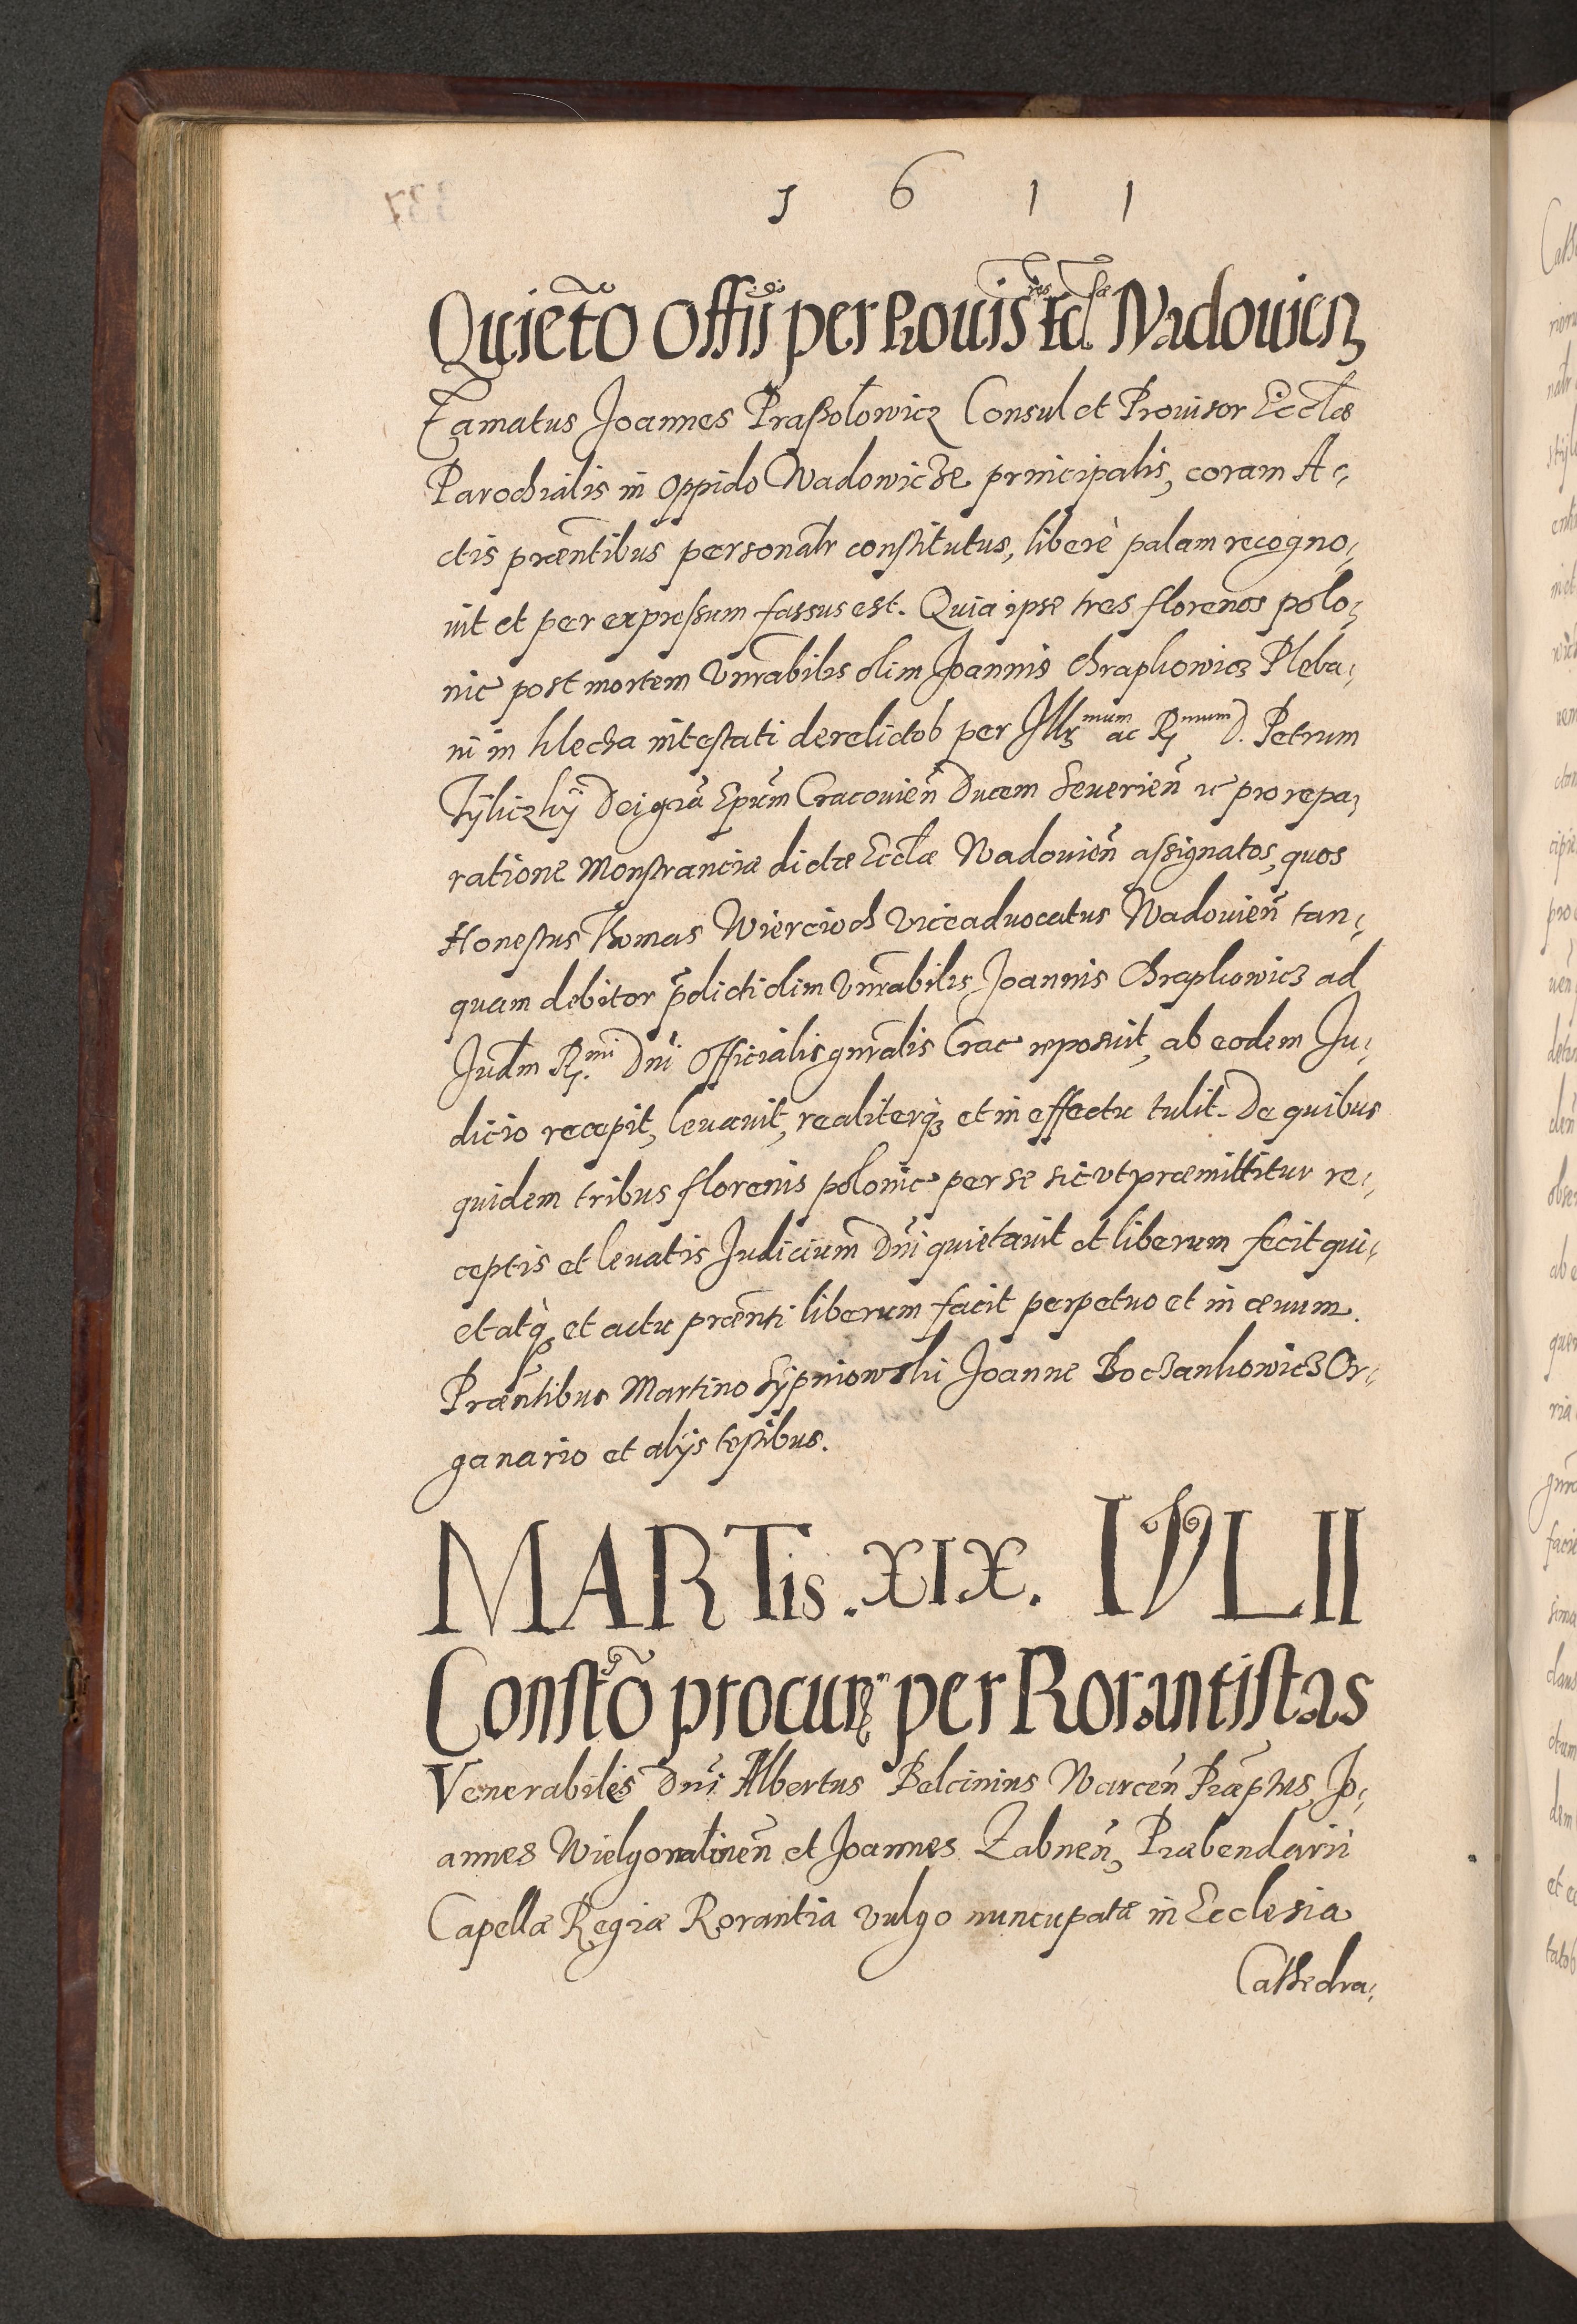 1 6 1 1
Quietõ Offii per Provisres Eclæ Wadowien
Famatus Joannes Praßołowicz Consul et Provisor Eccłæ
Parochialis in oppido Wadowicze principalis, coram A-
ctis præntibus personalr constitutus, liberè palam recogno-
uit et per expressum fassus est. Quia ipse tres florenos polo-
nic post mortem Vnrabilis olim Joannis Chrapkowicz Pleba-
ni in klecza intestati derelictos per Illrmum ac Rmum D. Petrum
Tÿliczkÿ Dei gra Epum Cracouien Ducem Seuerien &c pro repa-
ratione Monstranciæ dictæ Ecclæ Wadouien assignatos, quos
Honestus Thomas Wiercioch viceaduocatus Wadouien tan-
quam debitor pdicti olim Vnrabilis Joannis Chrapkowicz ad
Judm R.mi Dni Officialis gnralis Crac reposuit, ab eodem Ju-
dicio recepit, leuauit, realiterq3 et in effectu tulit. De quibus
quidem tribus florenis polonic per se sic vt præmittitur re-
ceptis et leuatis Judicium Dni quietauit et liberum fecit qui-
etatq et actu prænti liberum facit perpetuo et in æuum.
Præntibus Martino Sÿpniowski Joanne Boczankowicz Or-
ganario et alijs testibus.
MARTis .XIX. IVLII
Constõ procur per Rorantistas
Venerabiles Dni Albertus Belcinius Warcen Præptus, Jo-
annes Wielgomlinen et Joannes Zabnen, Præbendarii
Capellæ Regiæ Rorantia vulgo nuncupatæ in Ecclesia
Cathedra-